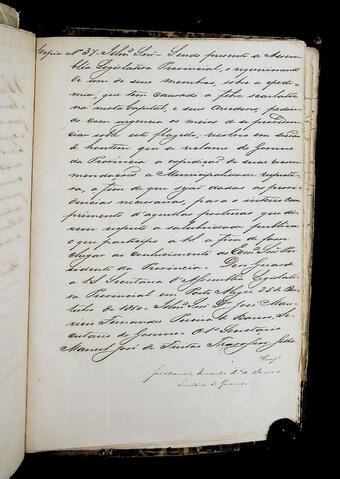 Copia Nº 37. Illmo Snr. Sendo presente a Assem-
blea Legislativa Provincial, o requerimento
de um de seus membros, sobre a epide-
mia, que tem causado a febre escarlatina
nesta Capital, e seus suburbios, pedin-
do com urgencia os meios de se providen-
ciar sobre este flagello, resolveo em sessão
d'hontem que se reclame do Governo
da Provincia a expedição de suas recom-
mendações a Municipalidade respecti-
va, a fim de que sejão dadas as provi-
dencias necessarias, para o inteiro cum-
primento d'aquellas posturas que di-
zem respeito a salubridade publica
o que participo a VS. a fim de fazer
chegar ao conhecimento do Exmo Snr Pre-
sidente da Provincia. Deos Guarde
a VS. Secretaria d'Assemblea Legislati-
va Provincial em Porto Alegre 25 de Ou-
tubro de Illmo Snr. Dr. José Mau-
ricio Fernandes Pereira de Barros, Se-
cretario do Governo. O 1º Secretario
Manoel José de Freitas Travassos Filho.
Conf.
José Mauricio Fernandes Pra de Barros
Secretario do Governo